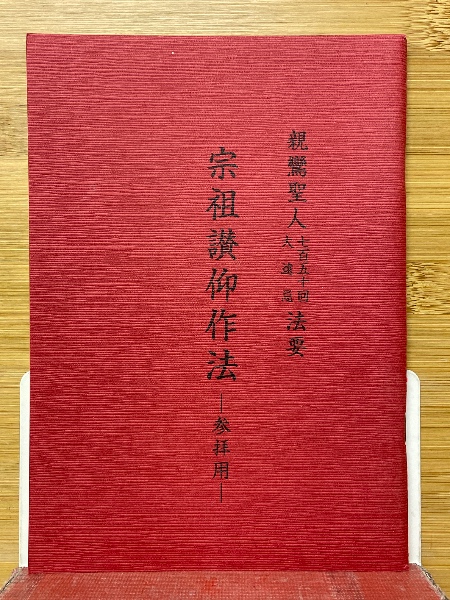 親鸞聖人七百五十回大遠忌法要
宗祖讃仰作法
―参拝用―